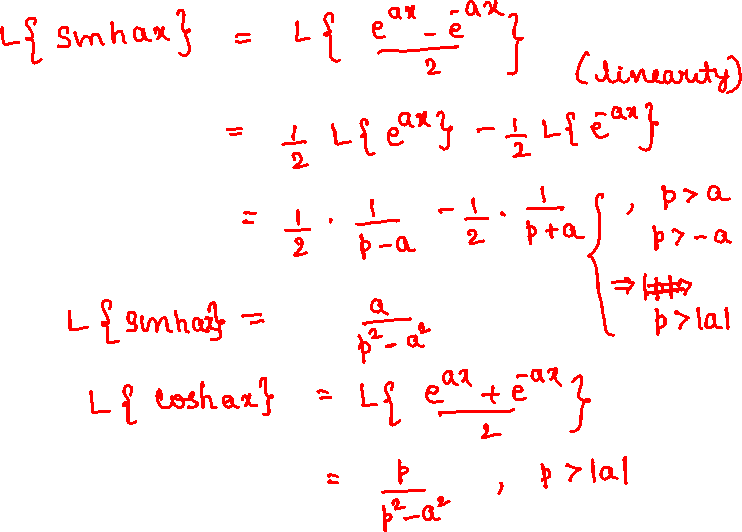 L{sinhax} = L{(e^{ax} - e^{-ax})/2}
(linearity)
= 1/2 L{e^{ax}} - 1/2 L{e^{-ax}}
= 1/2 · 1/(p-a) - 1/2 · 1/(p+a) { , p>a
p>-a
⇒
p>|a|
L{sinhax} = a/(p²-a²)
L{coshax} = L{(e^{ax} + e^{-ax})/2}
= p/(p²-a²) , p>|a|